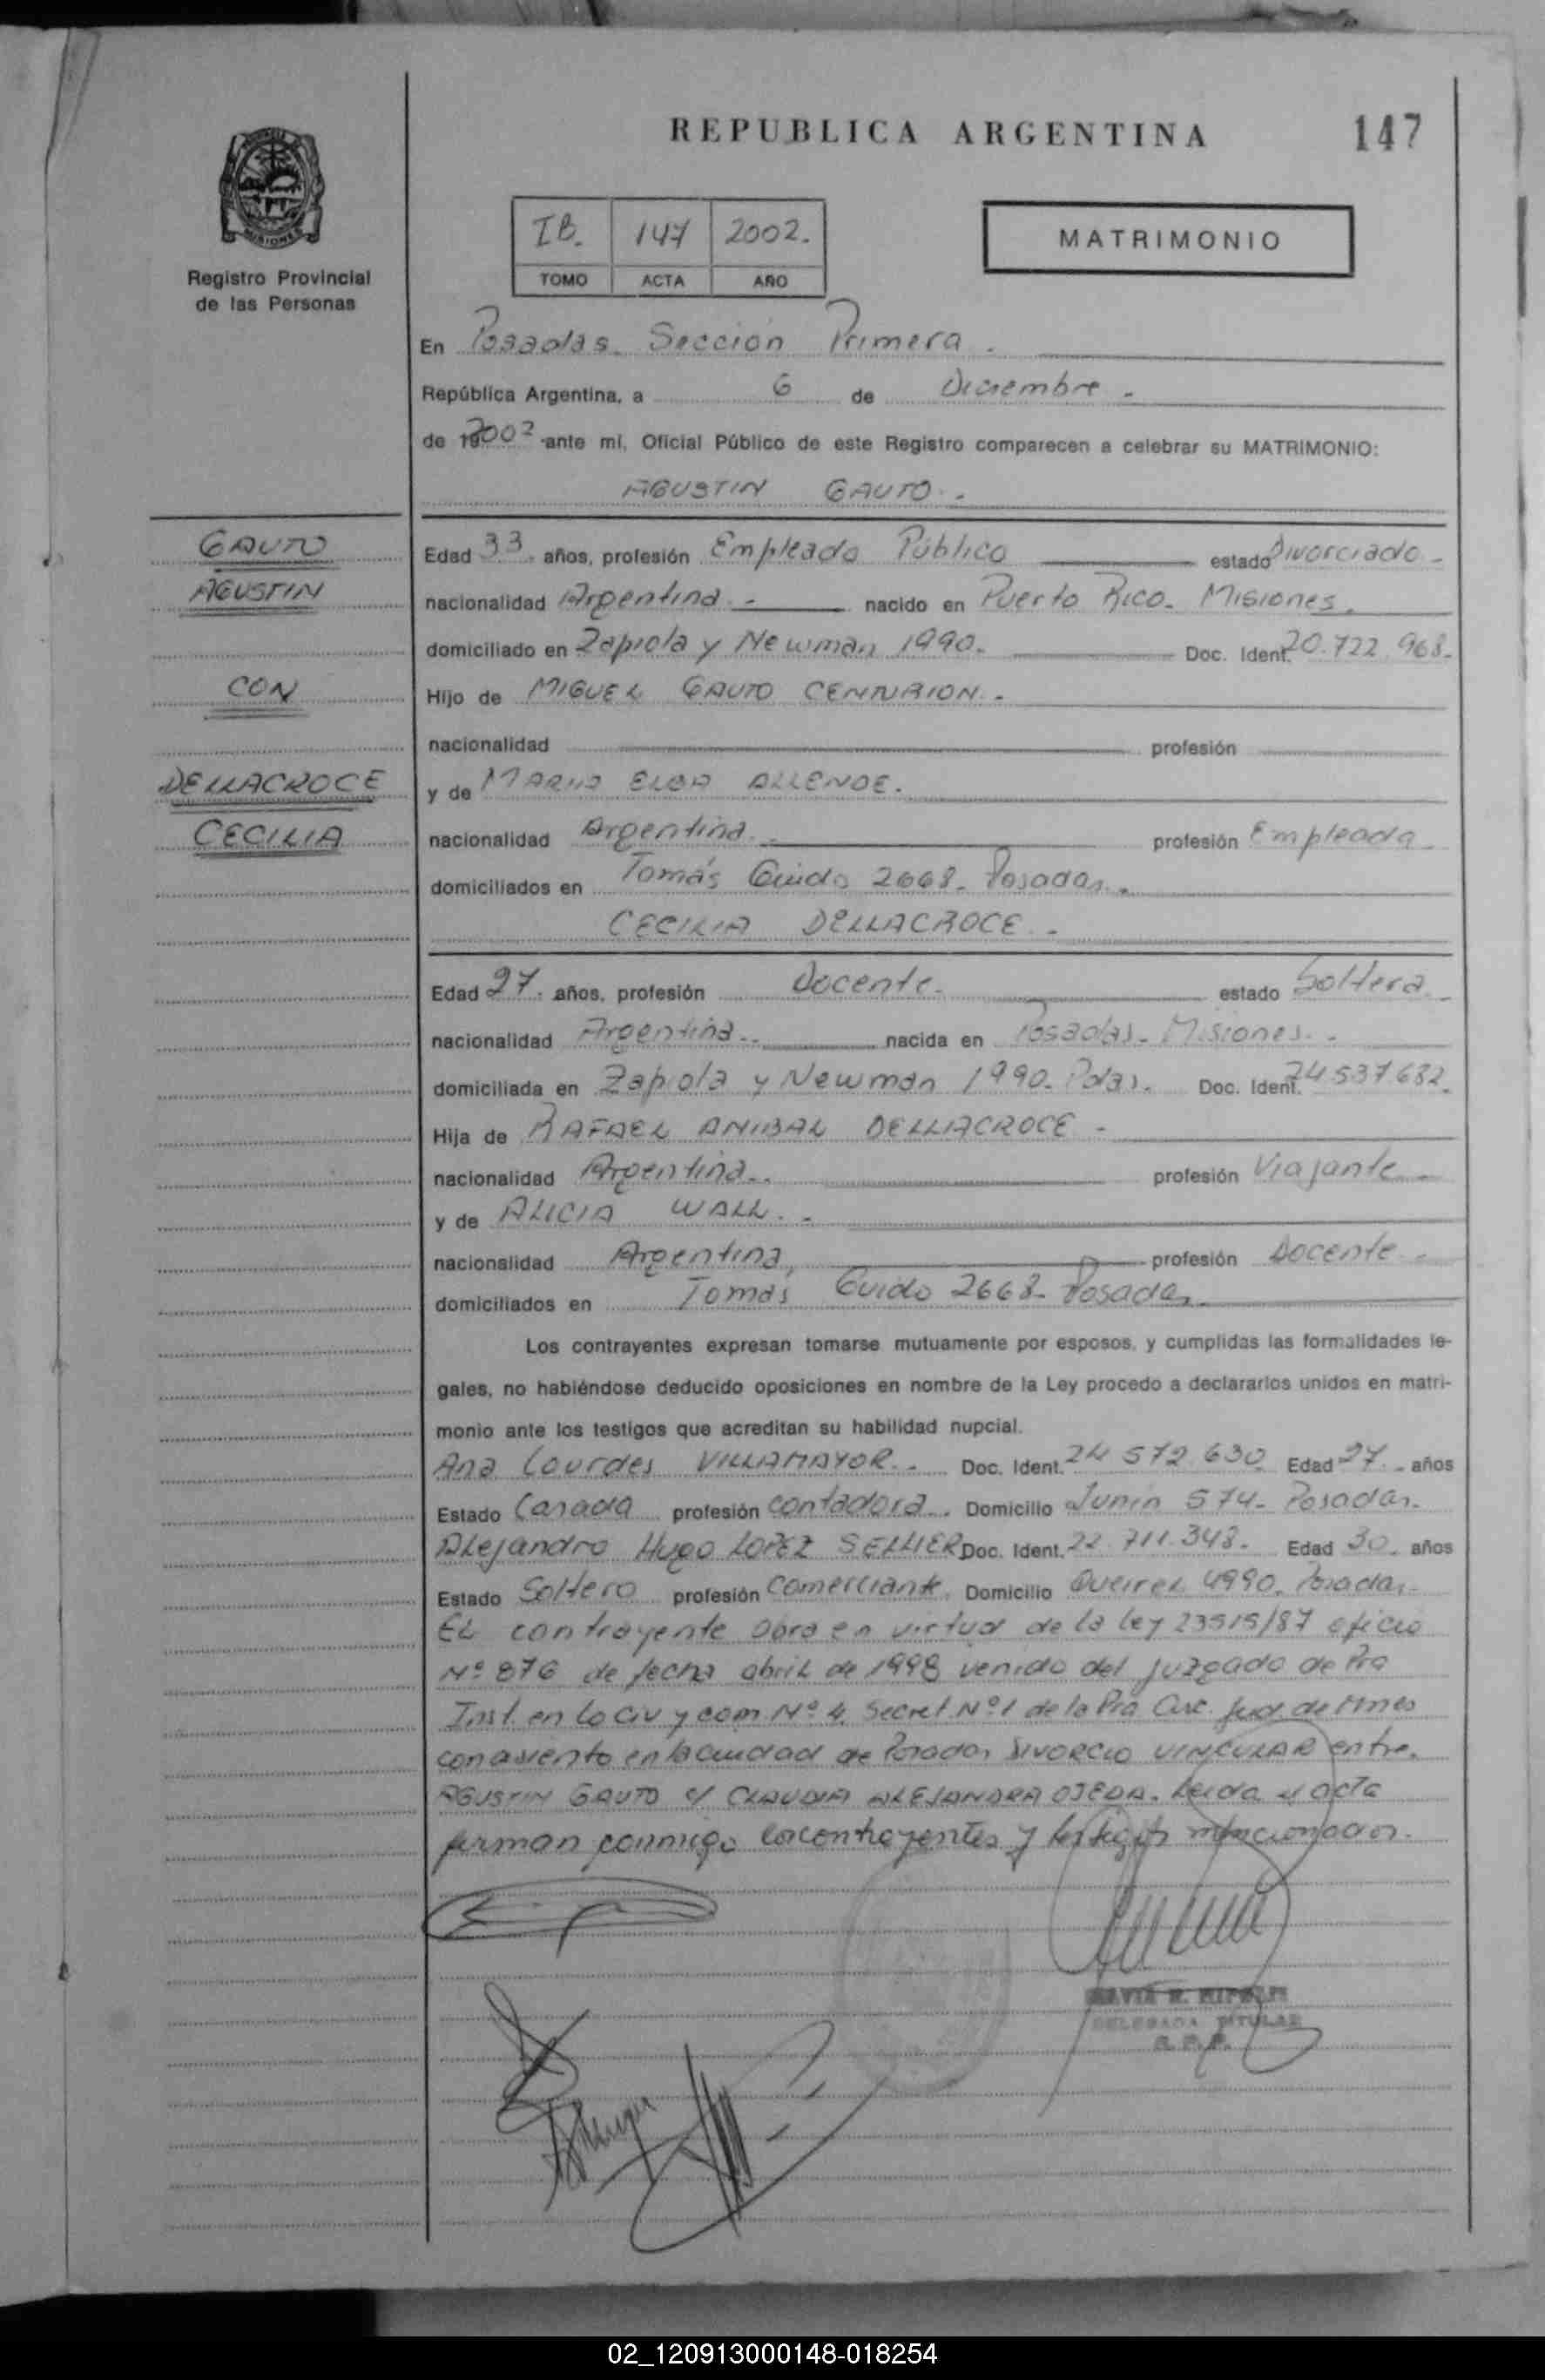 REPUBLICA ARGENTINA
147
MISIONES
Registro Provincial
de las Personas
IB. 147 2002.
TOMO ACTA AÑO
MATRIMONIO
En Posadas. Sección Primera.
República Argentina, a 6 de Diciembre.
de 2002 ante mí, Oficial Público de este Registro comparecen a celebrar su MATRIMONIO:
AGUSTIN GAUTO.
GAUTO
AGUSTIN
CON
DELLACROCE
CECILIA
Edad 33. años, profesión Empleado Público estado Divorciado
nacionalidad Argentina nacido en Puerto Rico. Misiones.
domiciliado en Zapiola y Newman 1990. Doc. Ident. 20.722.968.
Hijo de MIGUEL GAUTO CENTURION.
nacionalidad profesión
y de MARIA ELBA ALLENDE.
nacionalidad Argentina. profesión Empleada
domiciliados en Tomás Guido 2668. Posadas.
CECILIA DELLACROCE.
Edad 27. años, profesión Docente. estado Soltera
nacionalidad Argentina. nacida en Posadas. Misiones.
domiciliada en Zapiola y Newman 1990. Pdas. Doc. Ident. 24.537.682.
Hija de RAFAEL ANIBAL DELLACROCE
nacionalidad Argentina. profesión Viajante
y de ALICIA WALL.
nacionalidad Argentina, profesión Docente
domiciliados en Tomás Guido 2668. Posadas
Los contrayentes expresan tomarse mutuamente por esposos, y cumplidas las formalidades le-
gales, no habiéndose deducido oposiciones en nombre de la Ley procedo a declararlos unidos en matri-
monio ante los testigos que acreditan su habilidad nupcial.
Ana Lourdes VILLAMAYOR. Doc. Ident. 24 572.630 Edad 27. años
Estado Casada profesión contadora. Domicilio Junín 574. Posadas.
Alejandro Hugo LOPEZ SELLIER Doc. Ident. 22.711.348. Edad 30. años
Estado Soltero profesión Comerciante. Domicilio Queirel 4990. Posadas.
El contrayente obra en virtud de la ley 23515/87 oficio
Nº 876 de fecha abril de 1998 venido del juzgado de Pra
Inst. en lo Civ y com. Nº 4. Secret Nº 1 de la Pra Circ. Jud. de Mnes
con asiento en la ciudad de Posadas DIVORCIO VINCULAR entre.
AGUSTIN GAUTO c/ CLAUDIA ALEJANDRA OJEDA. Leida el acta
firman conmigo los contrayentes y testigos mencionados.
DELEGADA TITULAR
R. P. P.
02_120913000148-018254